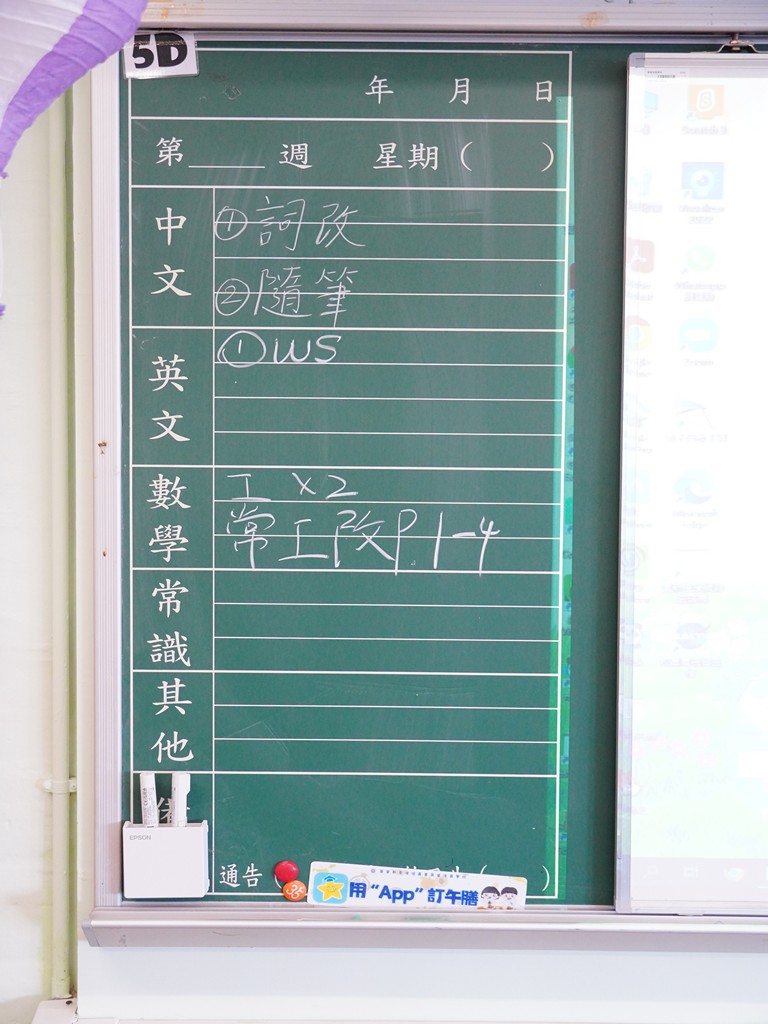 5D
年 月 日
第____週 星期( )
中文
①詞改
②隨筆
英文
①WS
數學
工 ×2
常工改P.1-4
常識
其他
EPSON
通告 (
)
用“App”訂午膳